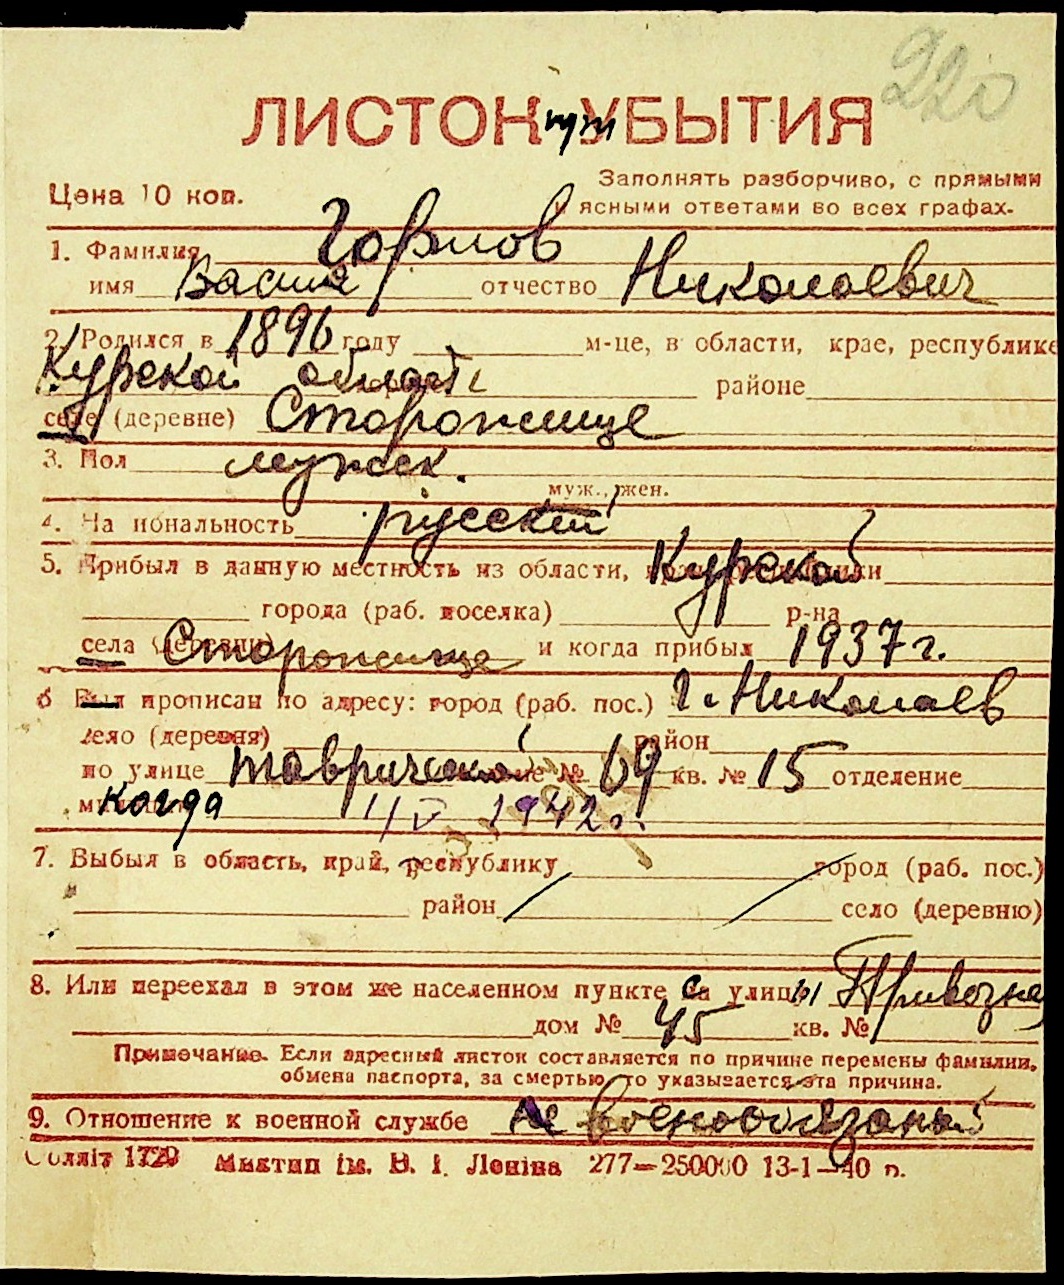 220
ЛИСТОК при УБЫТИЯ
Цена 10 коп.
Заполнять разборчиво, с прямыми
и ясными ответами во всех графах.
1. Фамилия Горлов
имя Васил отчество Николаевич
2. Родился в 1896 году м-це, в области, крае, республике
Курской области районе
селе (деревне) Сторожище
3. Пол мужск.
муж., жен.
4. На иональность русский
5. Прибыл в данную местность из области, Курской
города (раб. поселка) р-на
села (деревни) Сторожище и когда прибыл 1937 г.
6 Был прописан по адресу: город (раб. пос.) г. Николаев
село (деревня) район
по улице Таврической № 69 кв. № 15 отделение
когда 1942 г.
7. Выбыл в область, край, республику город (раб. пос.)
район село (деревню)
8. Или переехал в этом же населенном пункте с улицы Привозна
дом № 45 кв. №
Примечание. Если адресный листок составляется по причине перемены фамилии,
обмена паспорта, за смертью, то указывается эта причина.
9. Отношение к военной службе не военообязаный
Мыктип ім. В. І. Леніна 277—250000 13-1—40 р.